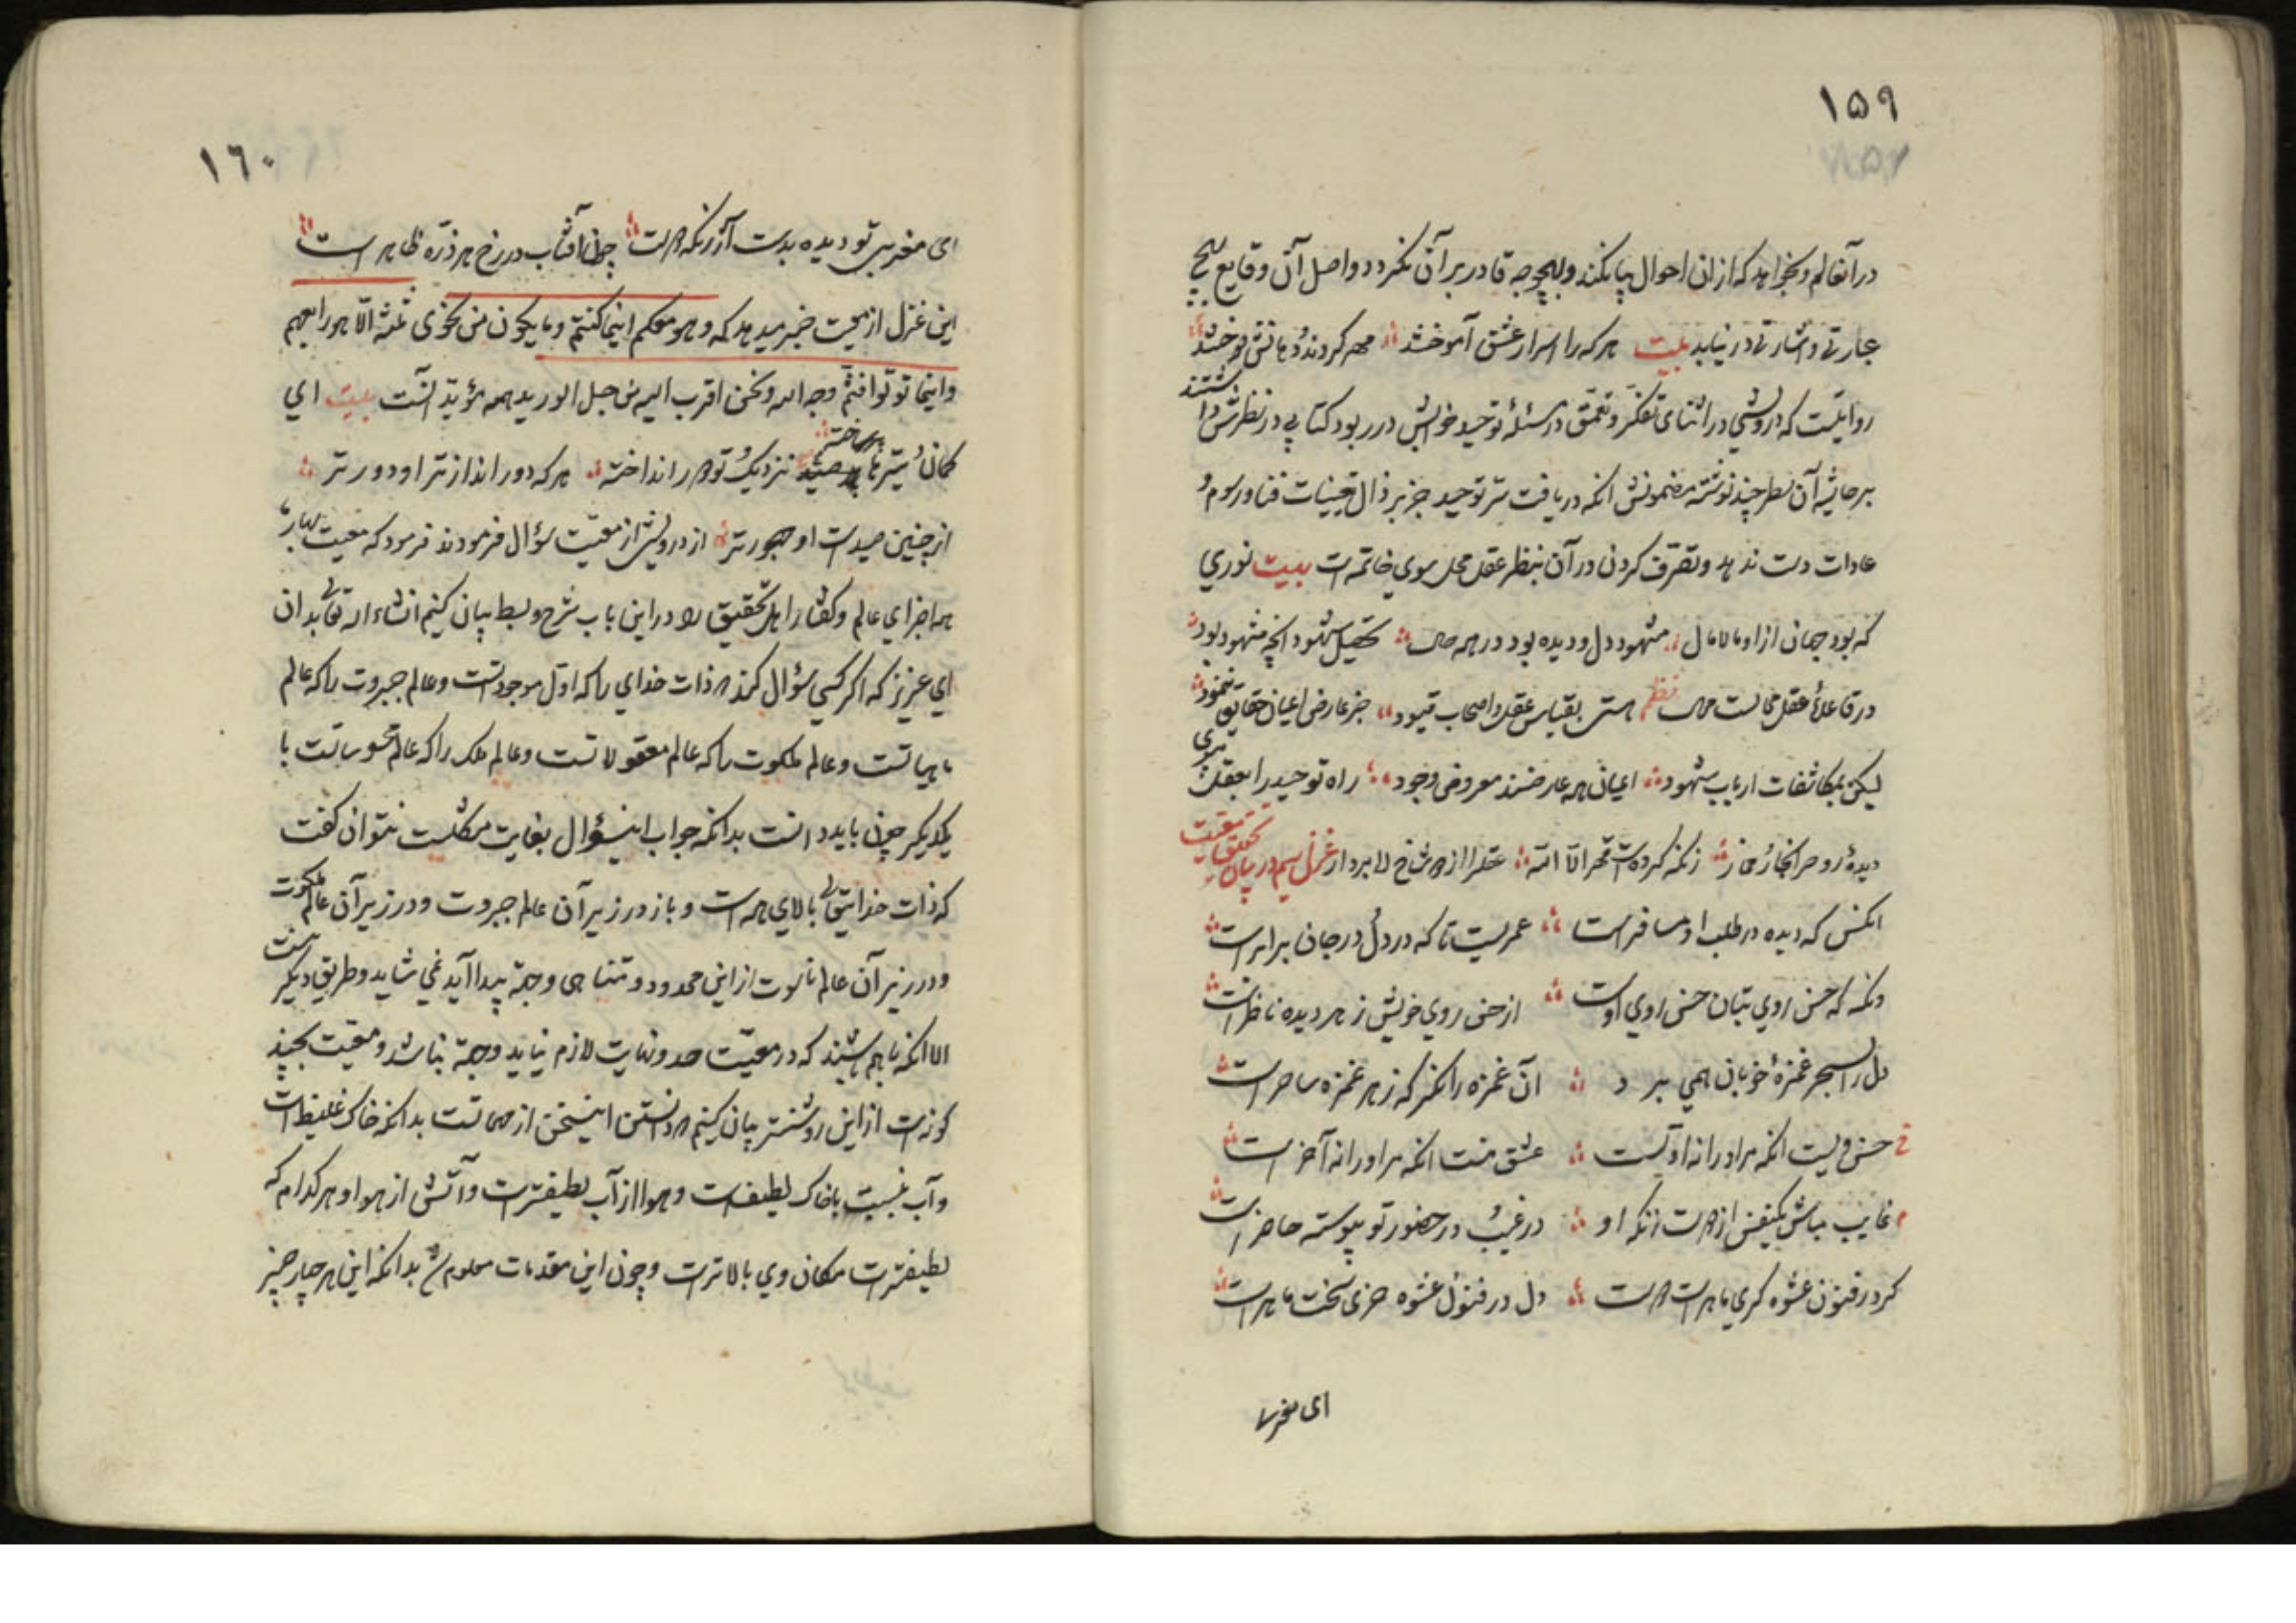 ۱۵۹
در آنعالم و بخواهد که از ان احوال بیا نکند و بهیچوجه قادر بر آن نگردد و اصل آن وقایع بهیچ
عبارتی و اشارتی در نیاید بیت هر که را اسرار عشق آموختند مهر کردند و دهانش دوختند
روایتست که درویشی در اثنای تفکر و تعمق در مسئلهٔ توحید خوابش در ربود کتابی در نظرش داشتند
بر حاشیه آن سطر چند نوشته مضمونش انکه دریافت سر توحید جز بزوال تعینات و فنا و رسوم و
عادات دست ندهد و تصرف کردن در آن بنظر عقل محل سوی خاتمه است بیت نوری
که بود جهان از او مالامال مشهود دل و دیده بود در همه حال تحصیل شهود انچه مشهود بود
در قاعدهٔ عقل محالست محال نظم هستی بقیاس عقل و اصحاب قیود جز عارض اعیان حقایق ننمود
لیکن بمکاشفات ارباب شهود اعیان همه عارضند معروض وجود راه توحید را بعقل مپوی
دیدهٔ روح را بخار مخار زانکه کرده است قهر الا الله عقل را از دو شاخ لا بردار غزل سیم در بیان تحقیق معیت
انکس که دیده در طلب او مسافر است عمریست تا که در دل و در جان برابر است
وانکه که حسن روی بتان حسن روی اوست از حسن روی خویش ز هر دیده ناظر است
دل را بسحر غمزهٔ خوبان همی برد آن غمزه را نگر که ز هر غمزه ساحر است
حسن ویست انکه مر او را نه اولست عشق منست انکه مر او را نه آخر است
غایب مباش یکنفس از دوست زانکه او در غیبت و در حضور تو پیوسته حاضر است
کر در فنون عشوه کری ماهر است دوست دل در فنون عشوه خری سخت ماهر است
ای مغربی
۱٦۰
ای مغربی تو دیده بدست آر زانکه دوست چون آفتاب در رخ هر ذره ظاهر است
این غزل از معیت خبر میدهد که وهو معکم اینما کنتم و ما یکون من نجوی ثلثة الا هو رابعهم
و اینما تولوا فثم وجه الله و نحن اقرب الیه من حبل الورید همه مؤید آنست بیت ای
کمان و تیرها بر ساخته صید نزدیک و تو دور انداخته هر که دور انداز تر او دور تر
از چنین صیدست او مهجور تر از درویشی از معیت سؤال فرمودند فرمود که معیت
همه اجزای عالم و گفتار اهل تحقیق را در این باب شرح و بسط بیان کنیم انشاء الله تعالی بدان
ای عزیز که اگر کسی سؤال کند که ذات خدای را که اول موجود است و عالم جبروت را که عالم
ماهیاتست و عالم ملکوت را که عالم معقولاتست و عالم ملک را که عالم محسوساتست با
یکدیگر چون باید دانست بدانکه جواب اینسؤال بغایت مشکلست نتوان گفت
که ذات خدایتعالی بالای همه است و باز در زیر آن عالم جبروت و در زیر آن عالم ملکوت
و در زیر آن عالم ناسوت از این محدود و متناهی و جهة پیدا آید نمی شاید و طریق دیگر نیست
الا انکه با هم باشند که در معیت حد و نهایت لازم نیاید و جهة نباشد و معیت بچند
کونه است از این روشنتر بیان کنیم که دانستن اینسخن از مهماتست بدانکه خاک غلیظ است
و آب بنسبت با خاک لطیف است و هوا از آب لطیفتر است و آتش از هوا و هر کدام که
لطیفتر است مکان وی بالاتر است و چون این مقدمات معلوم شد بدانکه این هر چهار چیز